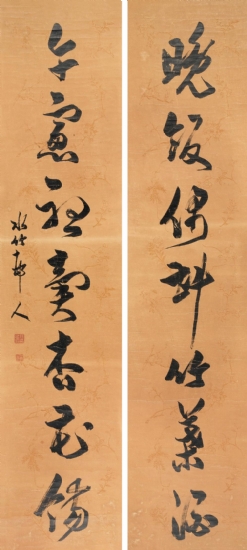 晚飯偶斟竹葉酒
午窗賣杏花餳
水竹邨人